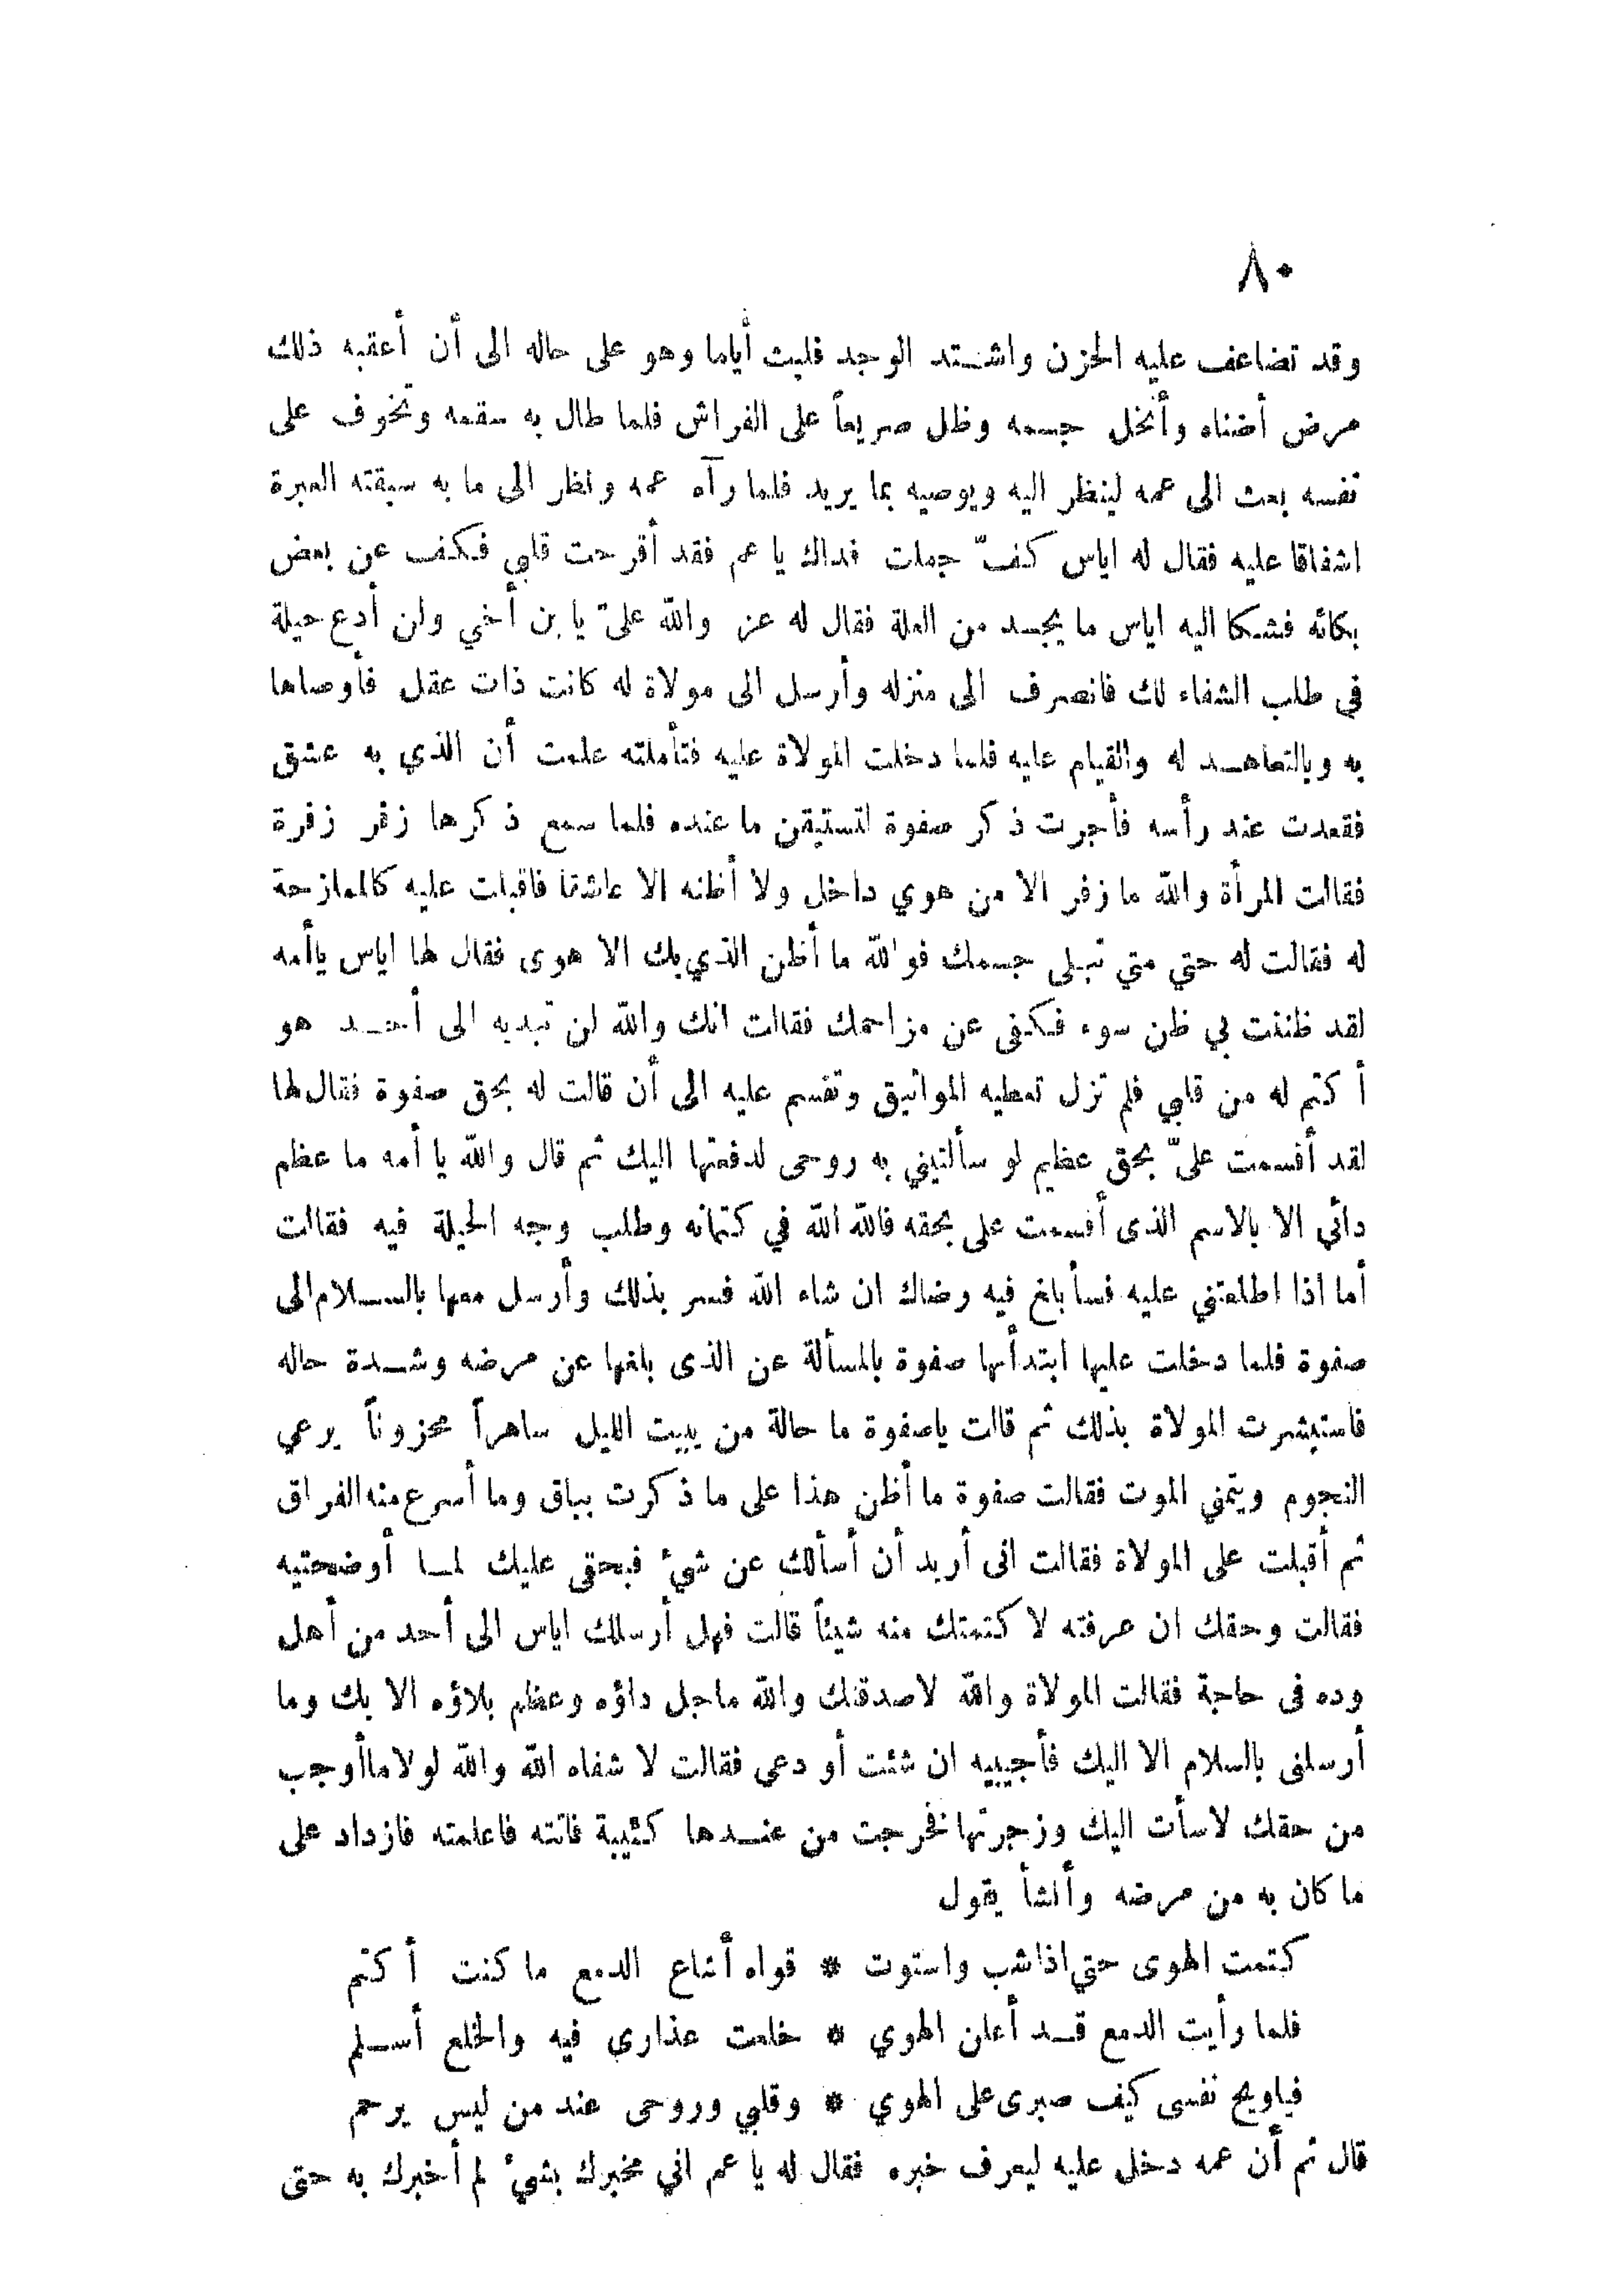 ٨٠
وقد تضاعف عليه الحزن واشتد الوجد فلبث أياما وهو على حاله الى أن أعقبه ذلك
مرض أضناه وأنحل جسمه وظل صريعاً على الفراش فلما طال به سقمه وتخوف على
نفسه بعث الى عمه لينظر اليه ويوصيه بما يريد فلما رآه عمه ونظر الى ما به سبقته العبرة
اشفاقا عليه فقال له اياس كفّ جعلت فداك يا عم فقد أقرحت قلبي فكف عن بعض
بكائه فشكا اليه اياس ما يجد من العلة فقال له عز والله علىّ يا بن أخي ولن أدع حيلة
في طلب الشفاء لك فانصرف الى منزله وأرسل الى مولاة له كانت ذات عقل فأوصاها
به وبالتعاهد له والقيام عليه فلما دخلت المولاة عليه فتأملته علمت أن الذي به عشق
فقعدت عند رأسه فأجرت ذكر صفوة لتستيقن ما عنده فلما سمع ذكرها زفر زفرة
فقالت المرأة والله ما زفر الا من هوي داخل ولا أظنه الا عاشقا فاقبلت عليه كالممازحة
له فقالت له حتي متي تبلى جسمك فوالله ما أظن الذي بك الا هوى فقال لها اياس ياأمه
لقد ظننت بي ظن سوء فكفى عن مزاحمك فقالت انك والله لن تبديه الى أحد هو
أكتم له من قلبي فلم تزل تعطيه المواثيق وتقسم عليه الى أن قالت له بحق صفوة فقال لها
لقد أقسمت علىّ بحق عظيم لو سألتيني به روحى لدفعتها اليك ثم قال والله يا أمه ما عظم
دائي الا بالاسم الذى أقسمت على بحقه فالله الله في كتمانه وطلب وجه الحيلة فيه فقالت
أما اذا اطلعتني عليه فسأبلغ فيه رضاك ان شاء الله فسر بذلك وأرسل معها بالسلام الى
صفوة فلما دخلت عليها ابتدأتها صفوة بالمسألة عن الذى بلغها عن مرضه وشدة حاله
فاستبشرت المولاة بذلك ثم قالت ياصفوة ما حالة من يبيت الليل ساهراً محزوناً يرعي
النجوم ويتمني الموت فقالت صفوة ما أظن هذا على ما ذكرت بباق وما أسرع منه الفراق
ثم أقبلت على المولاة فقالت انى أريد أن أسألك عن شيْ فبحقى عليك لما أوضحتيه
فقالت وحقك ان عرفته لا كتمتك منه شيئاً قالت فهل أرسلك اياس الى أحد من أهل
وده فى حاجة فقالت المولاة والله لاصدقنك والله ماجل داؤه وعظم بلاؤه الا بك وما
أرسلنى بالسلام الا اليك فأجيبيه ان شئت أو دعى فقالت لا شفاه الله والله لولا ماأوجب
من حقك لاسأت اليك وزجرتها فخرجت من عندها كئيبة فاتته فاعلمته فازداد على
ما كان به من مرضه وأنشأ يقول
كتمت الهوى حتي اذا شب واستوت * قواه أشاع الدمع ما كنت أكتم
فلما رأيت الدمع قد أعلن الهوي * خلعت عذاري فيه والخلع أسلم
فياويح نفسى كيف صبرى على الهوي * وقلبي وروحى عند من ليس يرحم
قال ثم أن عمه دخل عليه ليعرف خبره فقال له يا عم اني مخبرك بشيْ لم أخبرك به حتى